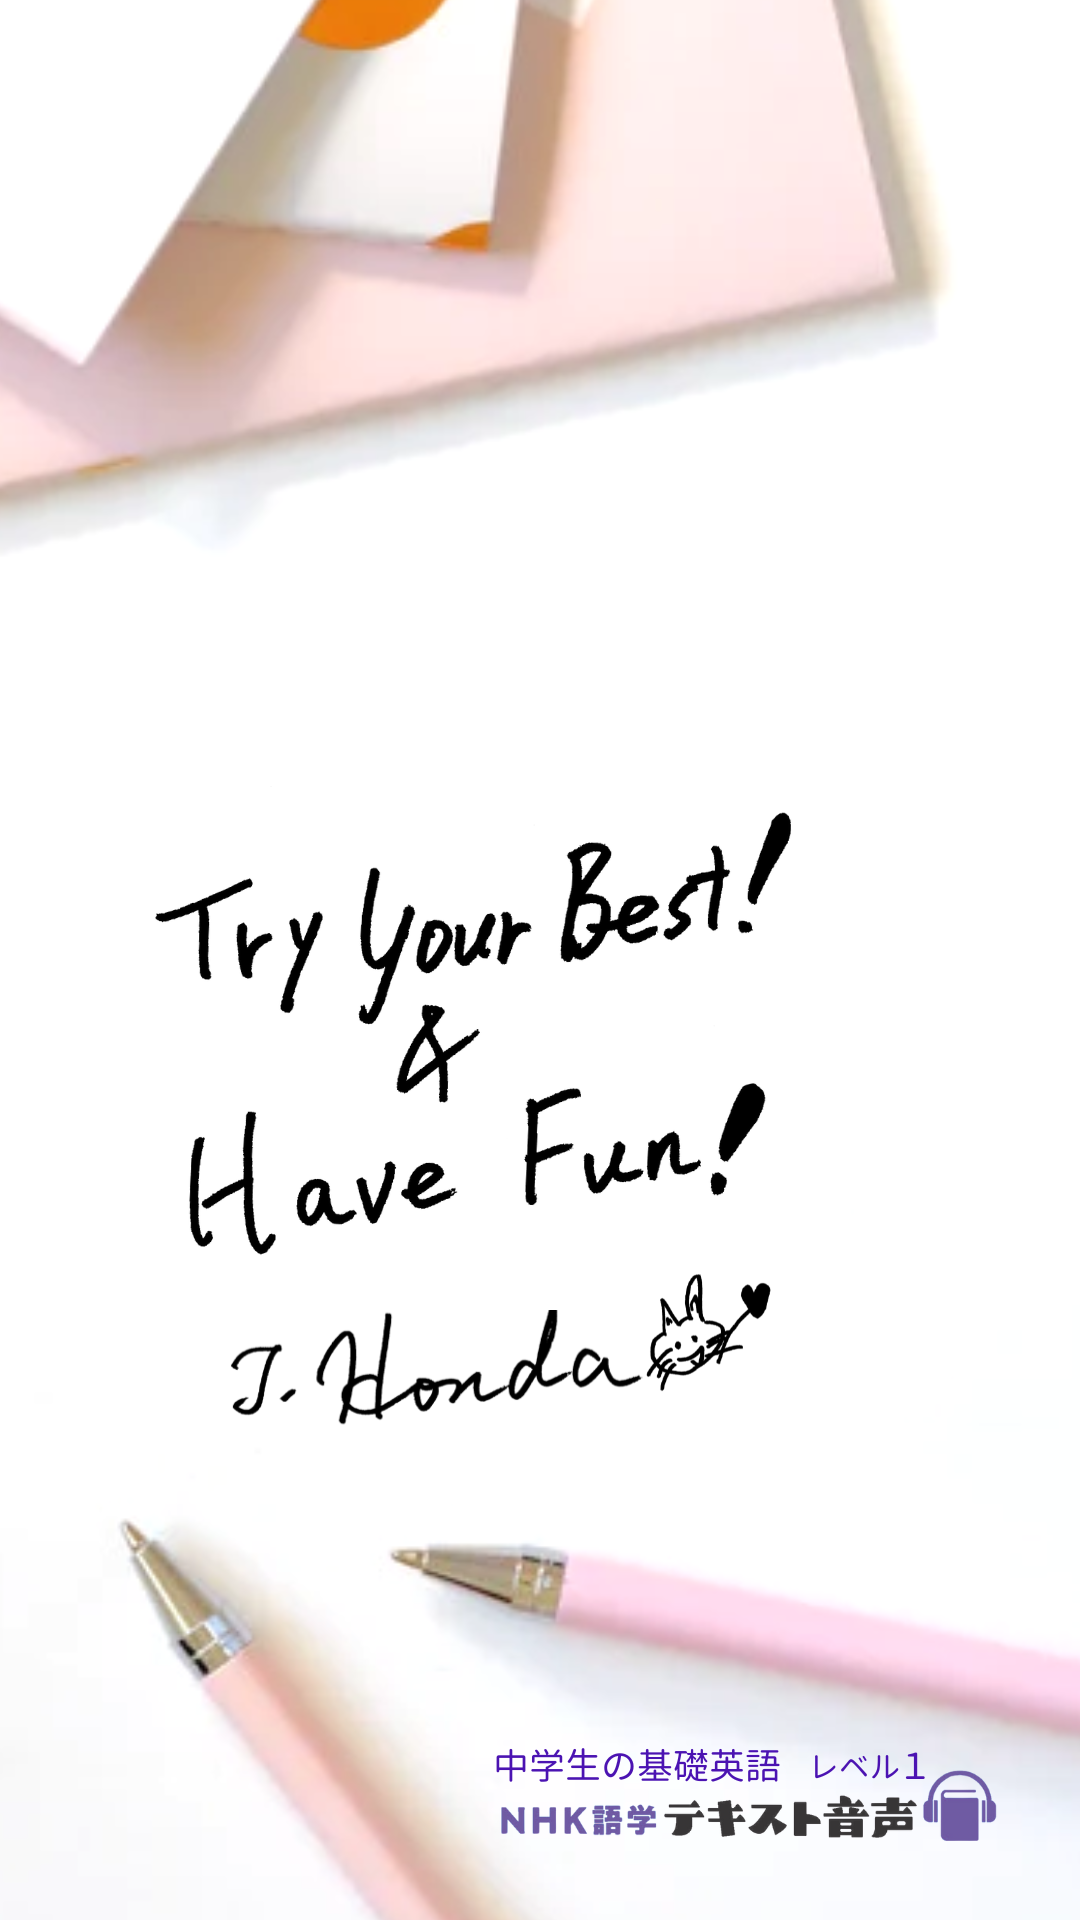 Try Your Best!
&
Have Fun!
T. Honda
中学生の基礎英語 レベル1
NHK語学テキスト音声